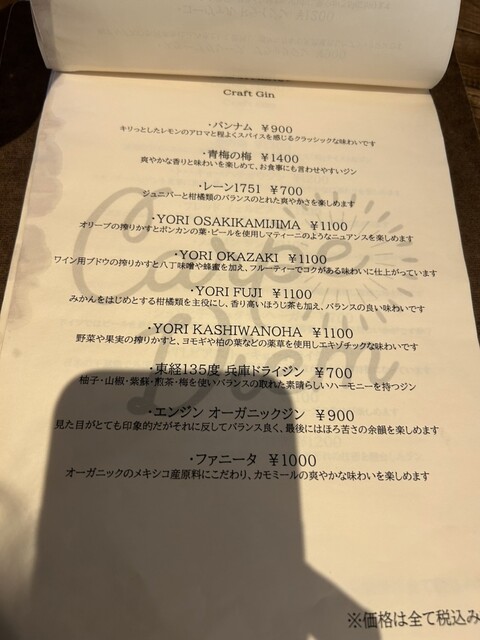 Craft Gin
・バンナム ¥900
キリっとしたレモンのアロマと程よくスパイスを感じるクラッシックな味わいです
・青梅の梅 ¥1400
爽やかな香りと味わいを楽しめて、お食事にも言わせやすいジン
・レーン1751 ¥700
ジュニパーと柑橘類のバランスのとれた爽やかさを楽しめます
・YORI OSAKIKAMIJIMA ¥1100
オリーブの搾りかすとポンカンの葉・ピールを使用しマティーニのようなニュアンスを楽しめます
・YORI OKAZAKI ¥1100
ワイン用ブドウの搾りかすと八丁味噌や蜂蜜を加え、フルーティーでコクがある味わいに仕上がっています
・YORI FUJI ¥1100
みかんをはじめとする柑橘類を主役にし、香り高いほうじ茶も加え、バランスの良い味わいです
・YORI KASHIWANOHA ¥1100
野菜や果実の搾りかすと、ヨモギや柏の葉などの薬草を使用しエキゾチックな味わいです
・東経135度 兵庫ドライジン ¥700
柚子・山椒・紫蘇・煎茶・梅を使いバランスの取れた素晴らしいハーモニーを持つジン
・エンジン オーガニックジン ¥900
見た目がとても印象的だがそれに反してバランス良く、最後にはほろ苦さの余韻を楽しめます
・ファニータ ¥1000
オーガニックのメキシコ産原料にこだわり、カモミールの爽やかな味わいを楽しめます
※価格は全て税込み